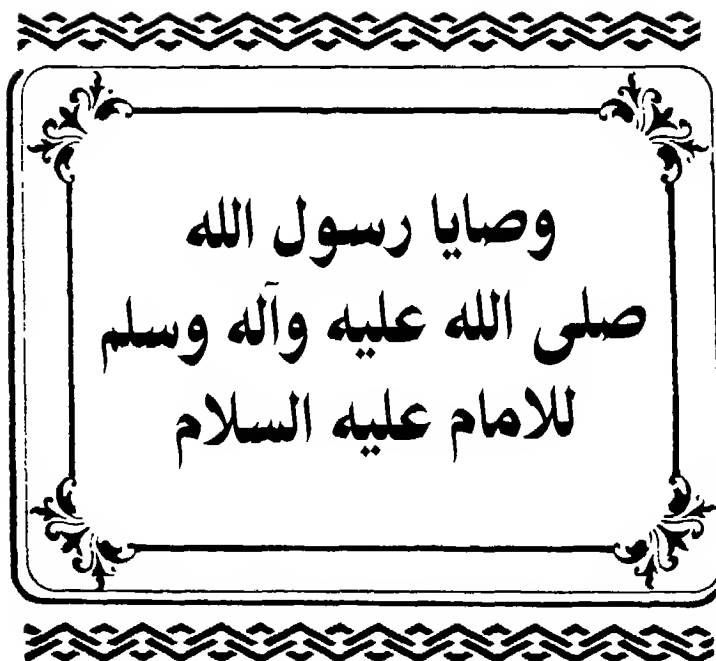 وصايا رسول الله
صلى الله عليه وآله وسلم
للامام عليه السلام